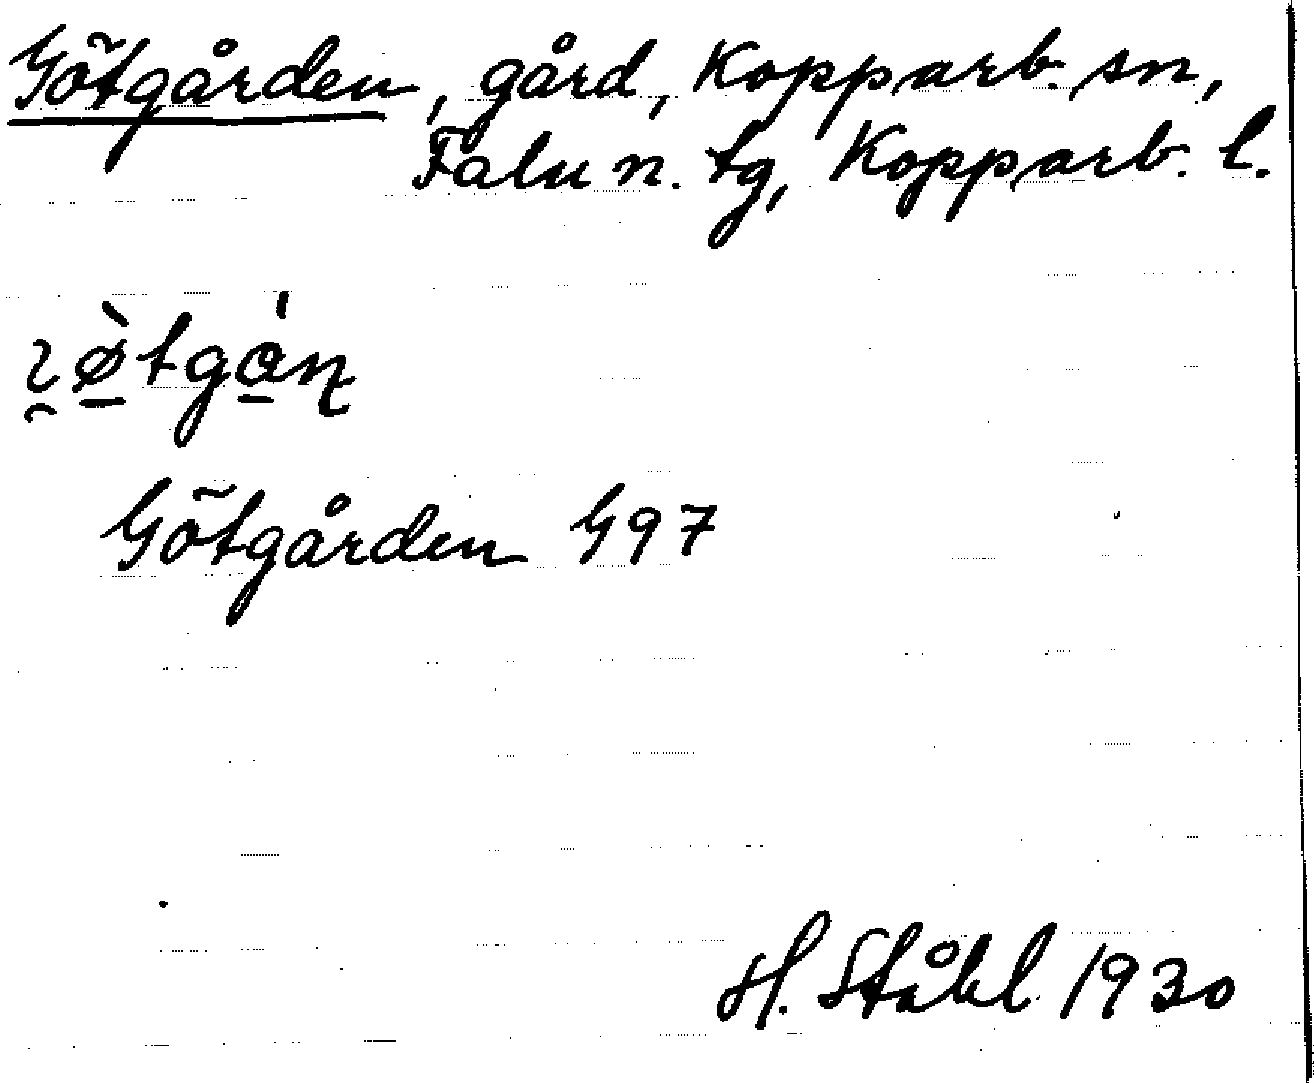 Götgården, gård, Kopparb. sn,
Falu n. tg, Kopparb. l.
Götgården G97
H. Ståhl 1930